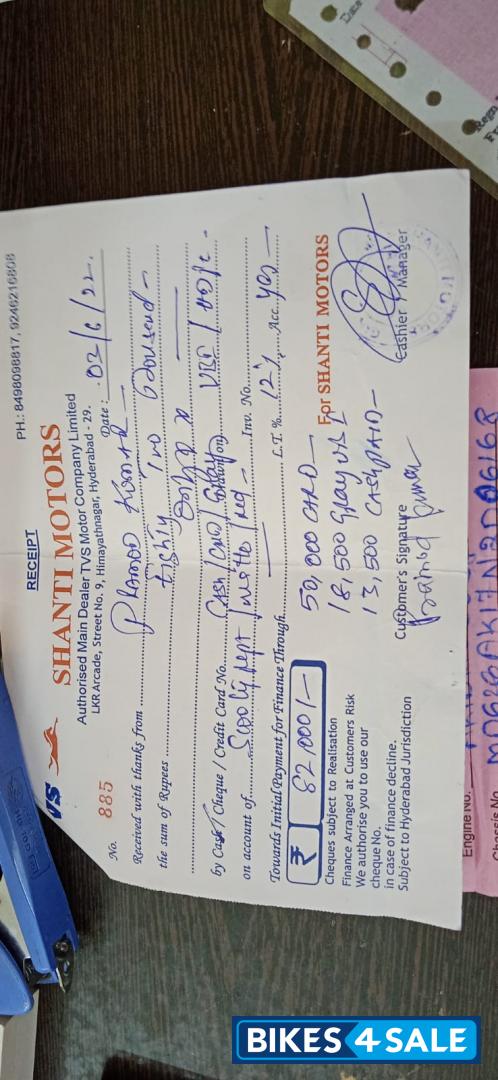 PH.: 8498098817, 9246216808
RECEIPT
VS
SHANTI MOTORS
Authorised Main Dealer TVS Motor Company Limited
LKR Arcade, Street No. 9, Himayathnagar, Hyderabad - 29.
No. 885
Date : 02/6/22
Received with thanks from PRAMOD KUMAR
the sum of Rupees Eighty Two Thousand
only
by Cash / Cheque / Credit Card No. CASH / CARD / GPay
on account of Scooty pept Red Inv. No.
Towards Initial Payment for Finance Through L.T. % 12% Acc. Yes
₹ 82,000/-
50,000 CARD
18,500 GPay
13,500 CASH PAID
For SHANTI MOTORS
Cheques subject to Realisation
Finance Arranged at Customers Risk
We authorise you to use our
cheque No.
in case of finance decline.
Subject to Hyderabad Jurisdiction
Customer's Signature
Pramod Kumar
Cashier / Manager
Date
Regn
Engine No.
Chassis No.
BIKES4SALE